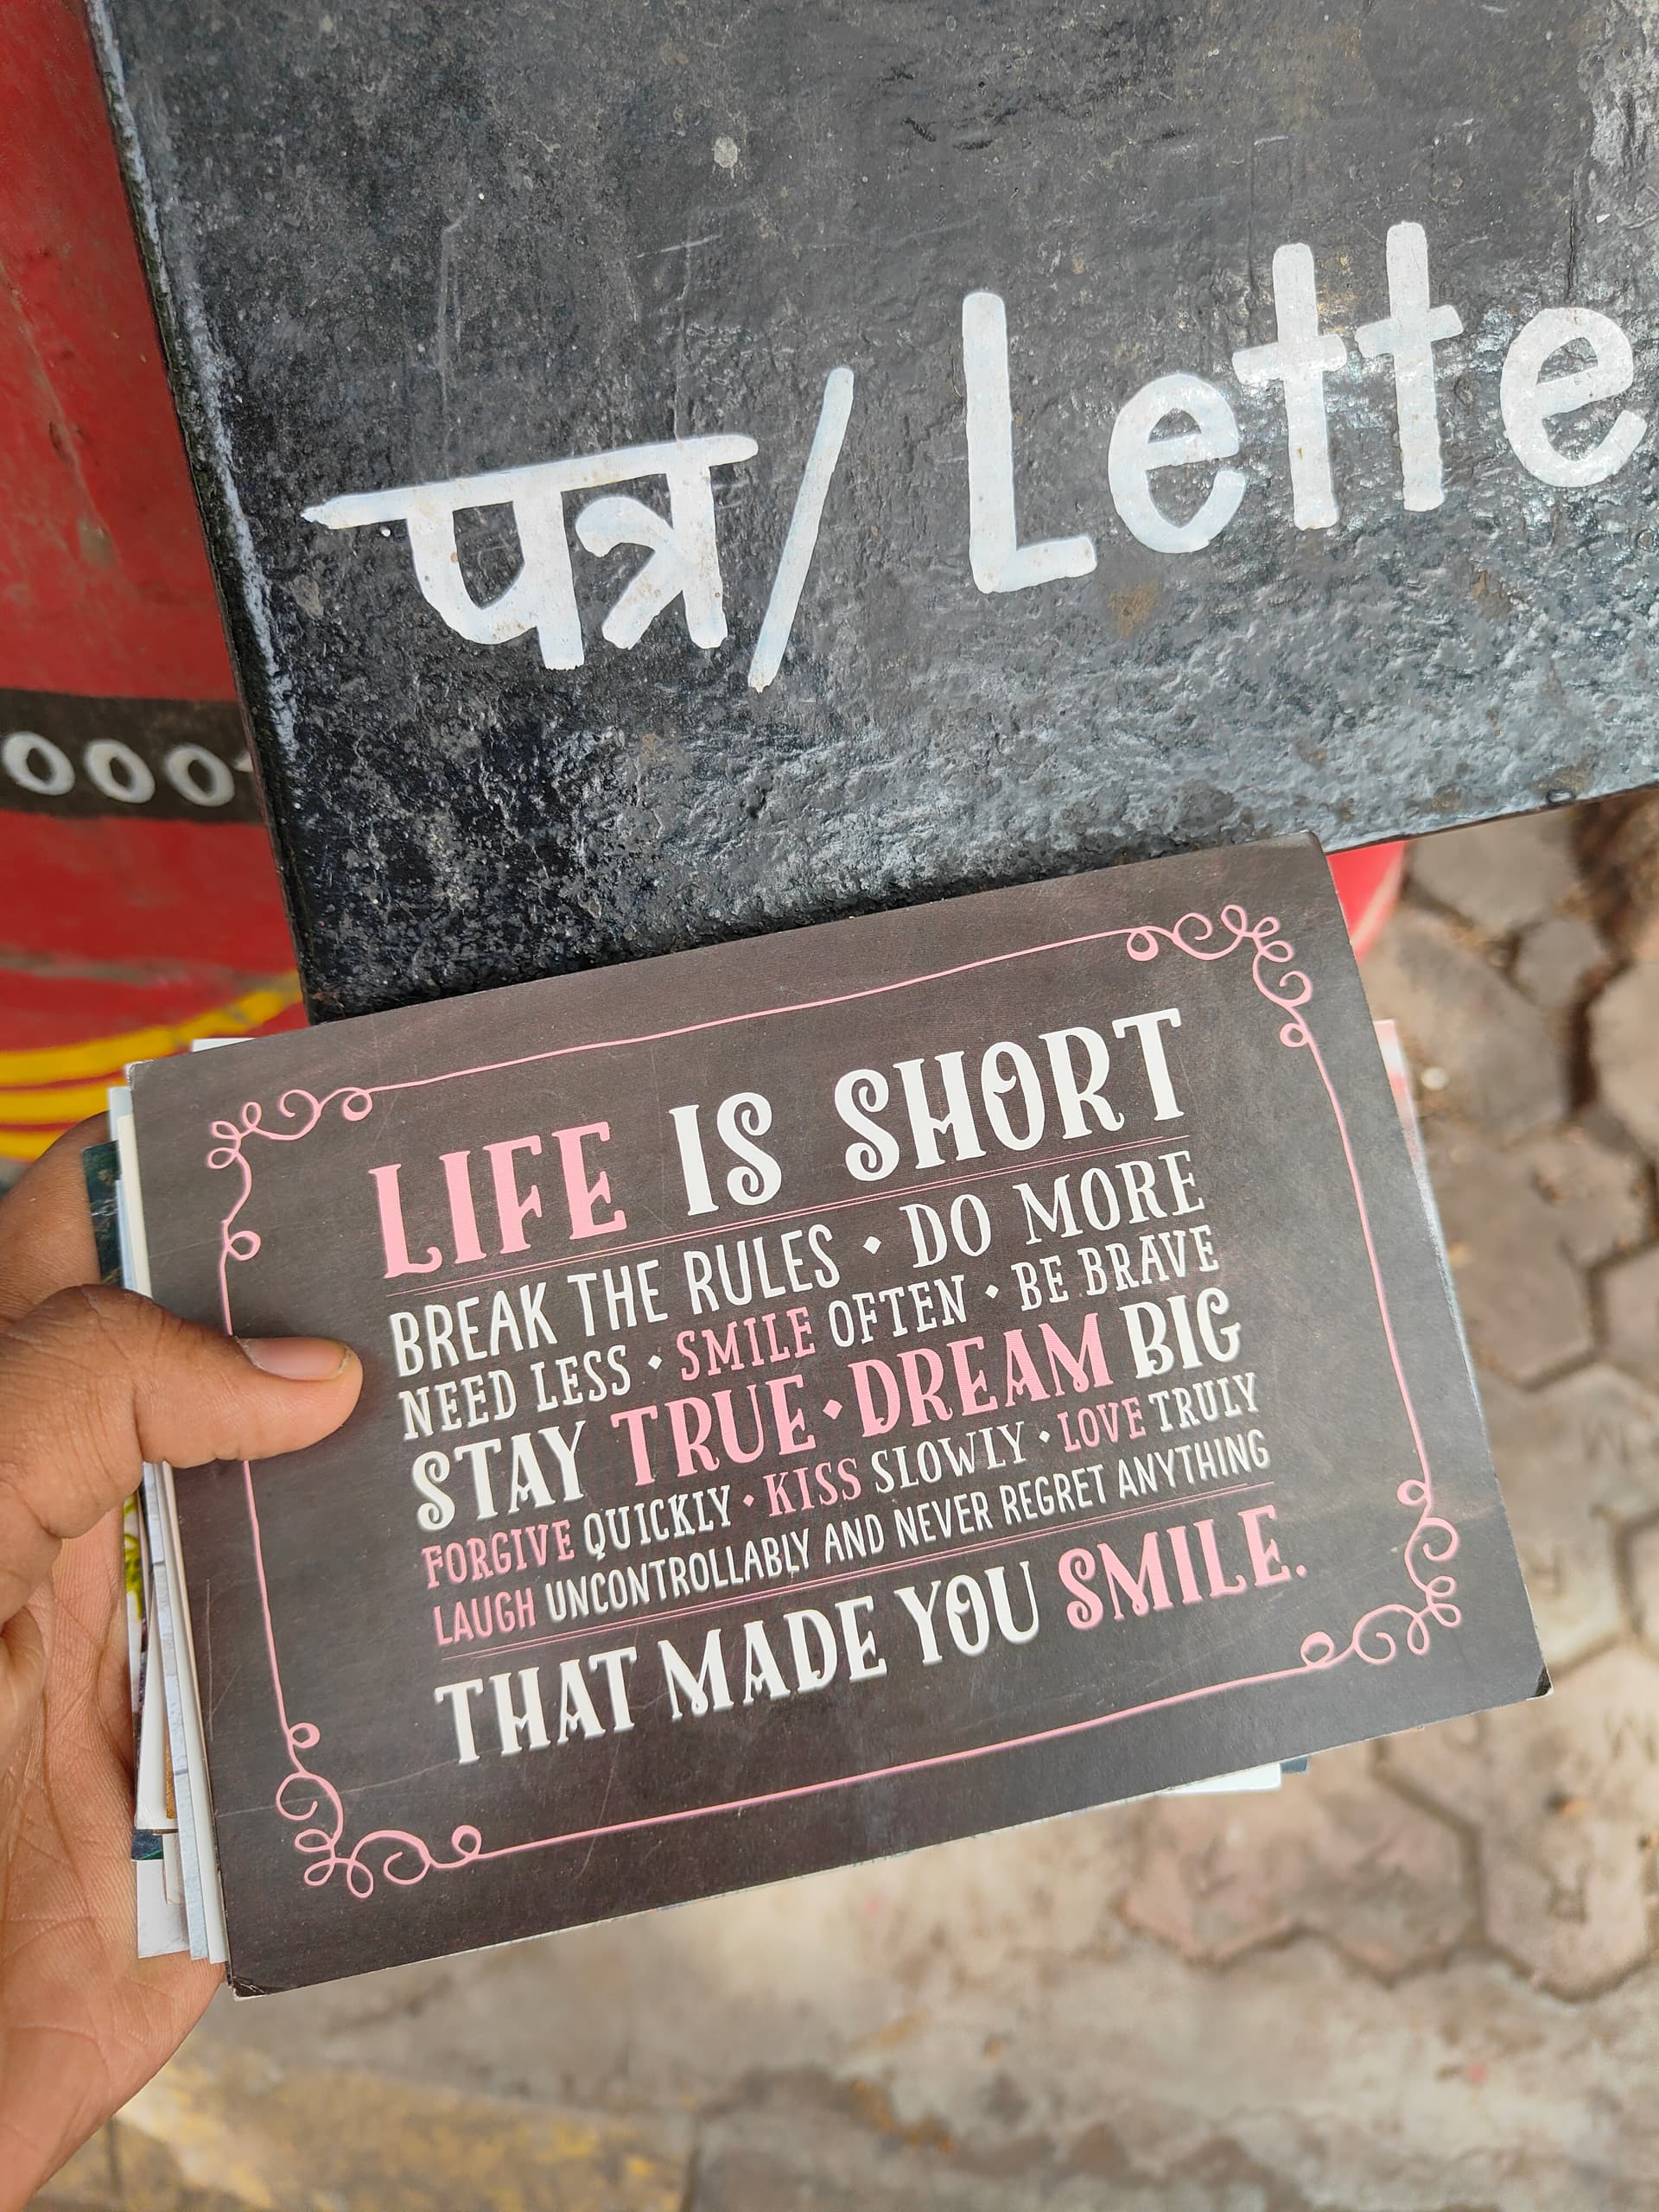 पत्र/ Lette
000
LIFE IS SHORT
BREAK THE RULES · DO MORE
NEED LESS · SMILE OFTEN · BE BRAVE
STAY TRUE · DREAM BIG
FORGIVE QUICKLY · KISS SLOWLY · LOVE TRULY
LAUGH UNCONTROLLABLY AND NEVER REGRET ANYTHING
THAT MADE YOU SMILE.